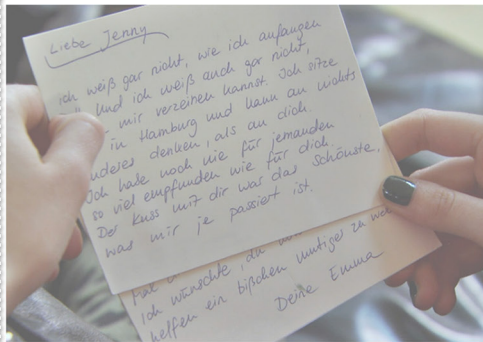 Liebe Jenny
ich weiß gar nicht, wie ich anfangen
und ich weiß auch gar nicht,
mir verzeihen kannst. Ich sitze
in Hamburg und kann an nichts
anderes denken, als an dich.
Ich habe noch nie für jemanden
so viel empfunden wie für dich.
Der Kuss mit dir war das Schönste,
was mir je passiert ist.
Ich wünschte, du
helfen ein bißchen mutiger zu
Deine Emma